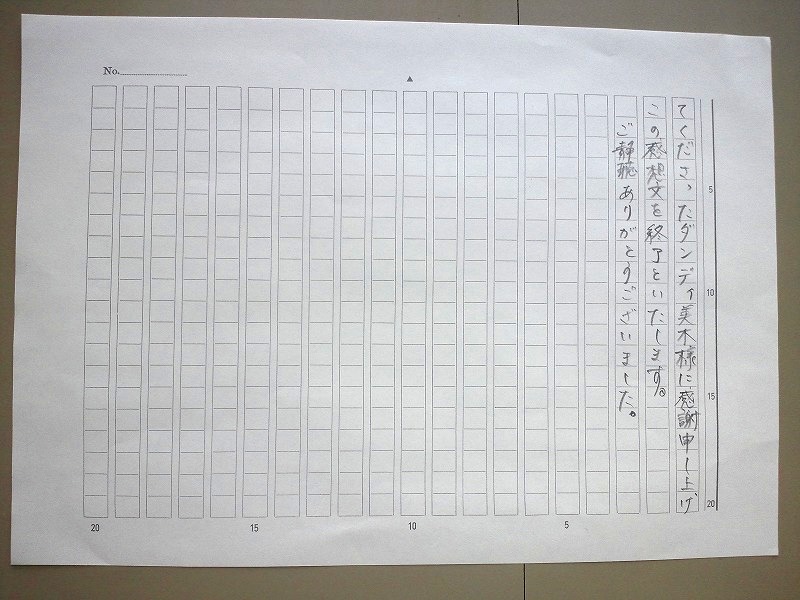 てくださったダンディ美木様に感謝申し上げ、
この感想文を終了といたします。
ご静聴ありがとうございました。
No.
▲
5
10
15
20
20
15
10
5